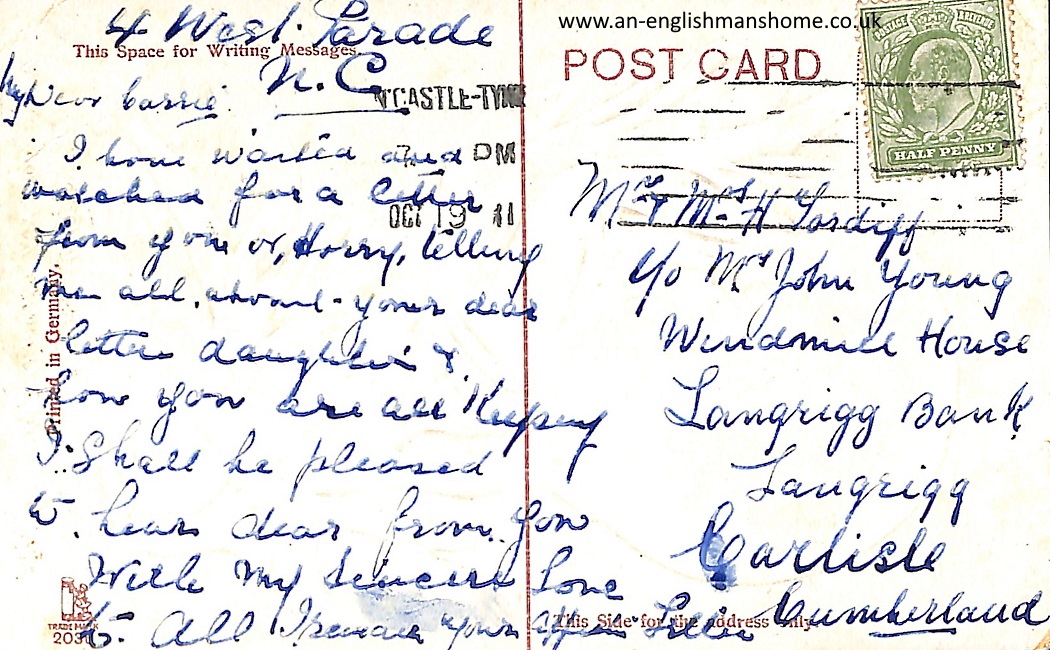 www.an-englishmanshome.co.uk
4 West Parade
This Space for Writing Messages.
N.C
My Dear Carrie
I have waited and
watched for a letter
from you or, Harry, telling
me all about your dear
little daughter &
how you are all Keeping
I Shall be pleased
to hear dear from you
With My Sincere Love
to All I remain your Lillie
Printed in Germany.
TRADE MARK
POST CARD
N'CASTLE-TYNE
PM
OCT 19 11
HALF PENNY
Mr & Mrs H
c/o Mr John Young
Windmill House
Langrigg Bank
Langrigg
Carlisle
Cumberland
This Side for the address only